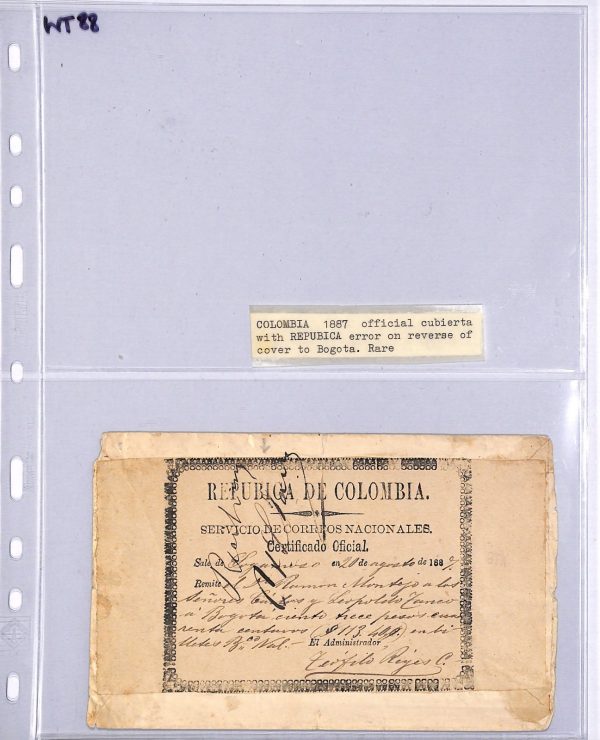 WT 88
COLOMBIA 1887 official cubierta
with REPUBICA error on reverse of
cover to Bogota. Rare
REPUBICA DE COLOMBIA.
SERVICIO DE CORREOS NACIONALES.
Certificado Oficial.
Sale de Sogamoso en 20 de agosto de 188
Remite Ramon Montejo a los
Señores y Leopoldo Tanco
á Bogotá ciento trece pesos cua
renta centavos ($ 113,40) en bi
lletes Bco Nal.— El Administrador,
Teófilo Reyes C.